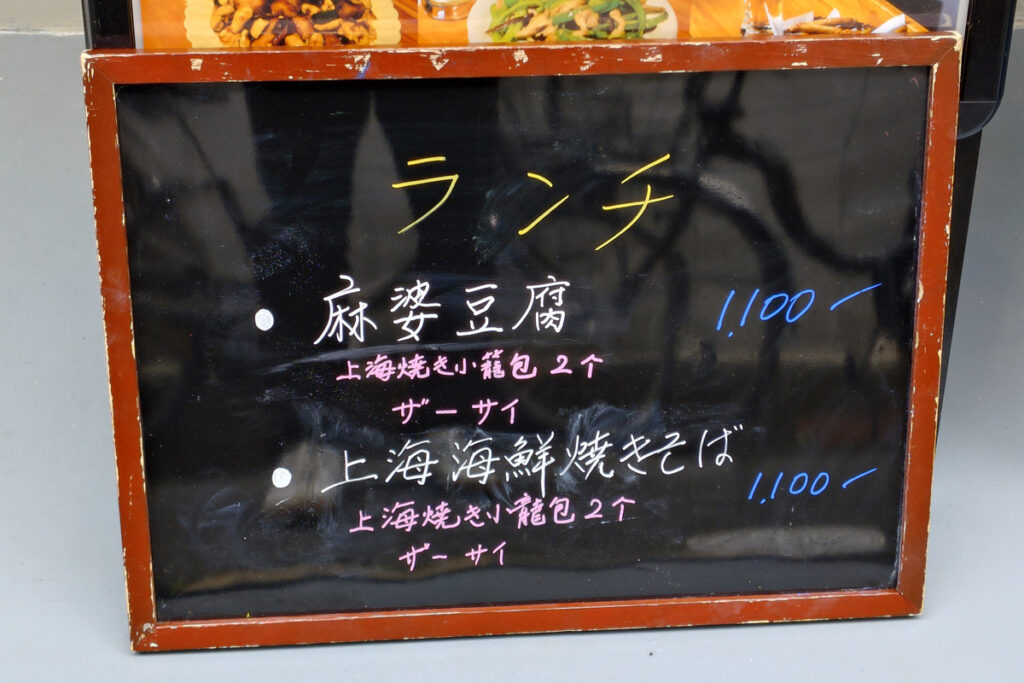 ランチ
• 麻婆豆腐 1,100-
上海焼き小籠包 2个
ザーサイ
• 上海海鮮焼きそば 1,100-
上海焼き小龍包 2个
ザーサイ